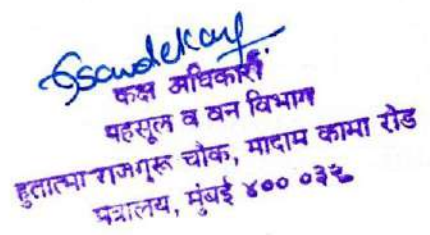 कक्ष अधिकारी
महसूल व वन विभाग
हुतात्मा राजगुरू चौक, मादाम कामा रोड
मंत्रालय, मुंबई ४०० ०३२